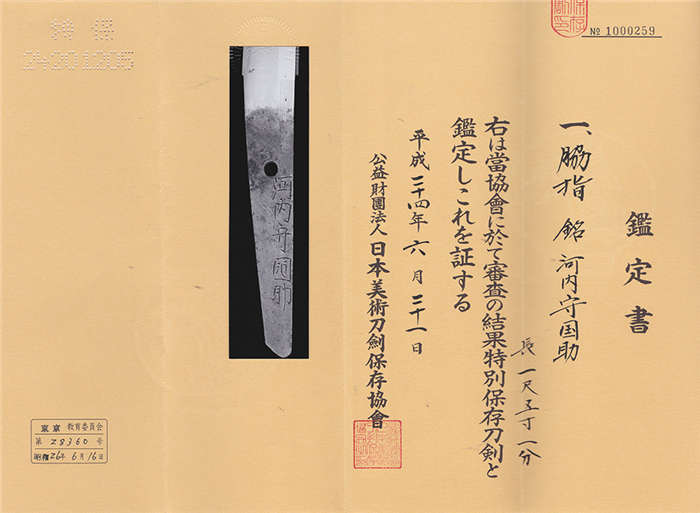 № 1000259
鑑定書
一、脇指 銘 河内守国助
長一尺五寸一分
右は當協會に於て審査の結果特別保存刀剣と
鑑定しこれを証する
平成二十四年六月二十一日
公益財團法人 日本美術刀劍保存協會
河内守国助
東京 教育委員会
第 28360 号
昭和26年6月16日